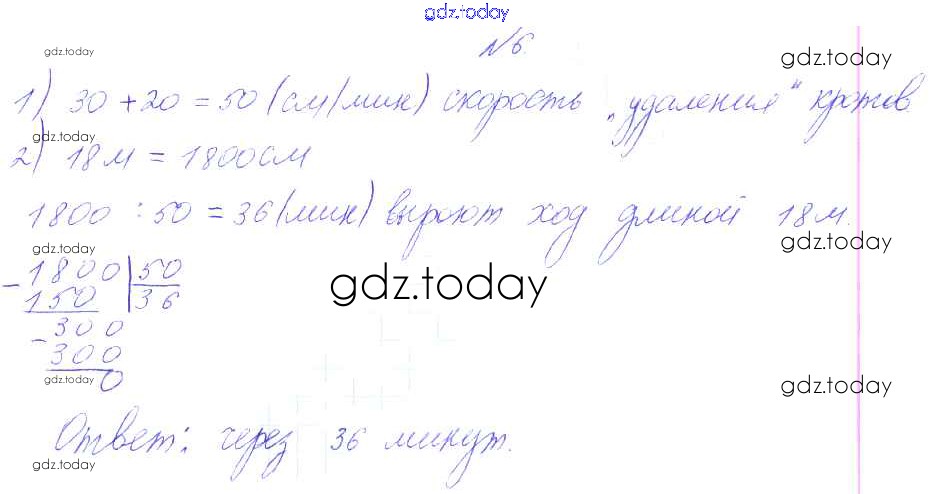 gdz.today
№6.
gdz.today gdz.today
1) 30 + 20 = 50 (см/мин) скорость „удаления“ кротов.
gdz.today
2) 18м = 1800см
1800 : 50 = 36 (мин) выроют ход длиной 18м.
gdz.today gdz.today
- 1800 | 50
150 | 36
gdz.today
- 300
300
gdz.today 0 gdz.today
Ответ: через 36 минут.
gdz.today gdz.today